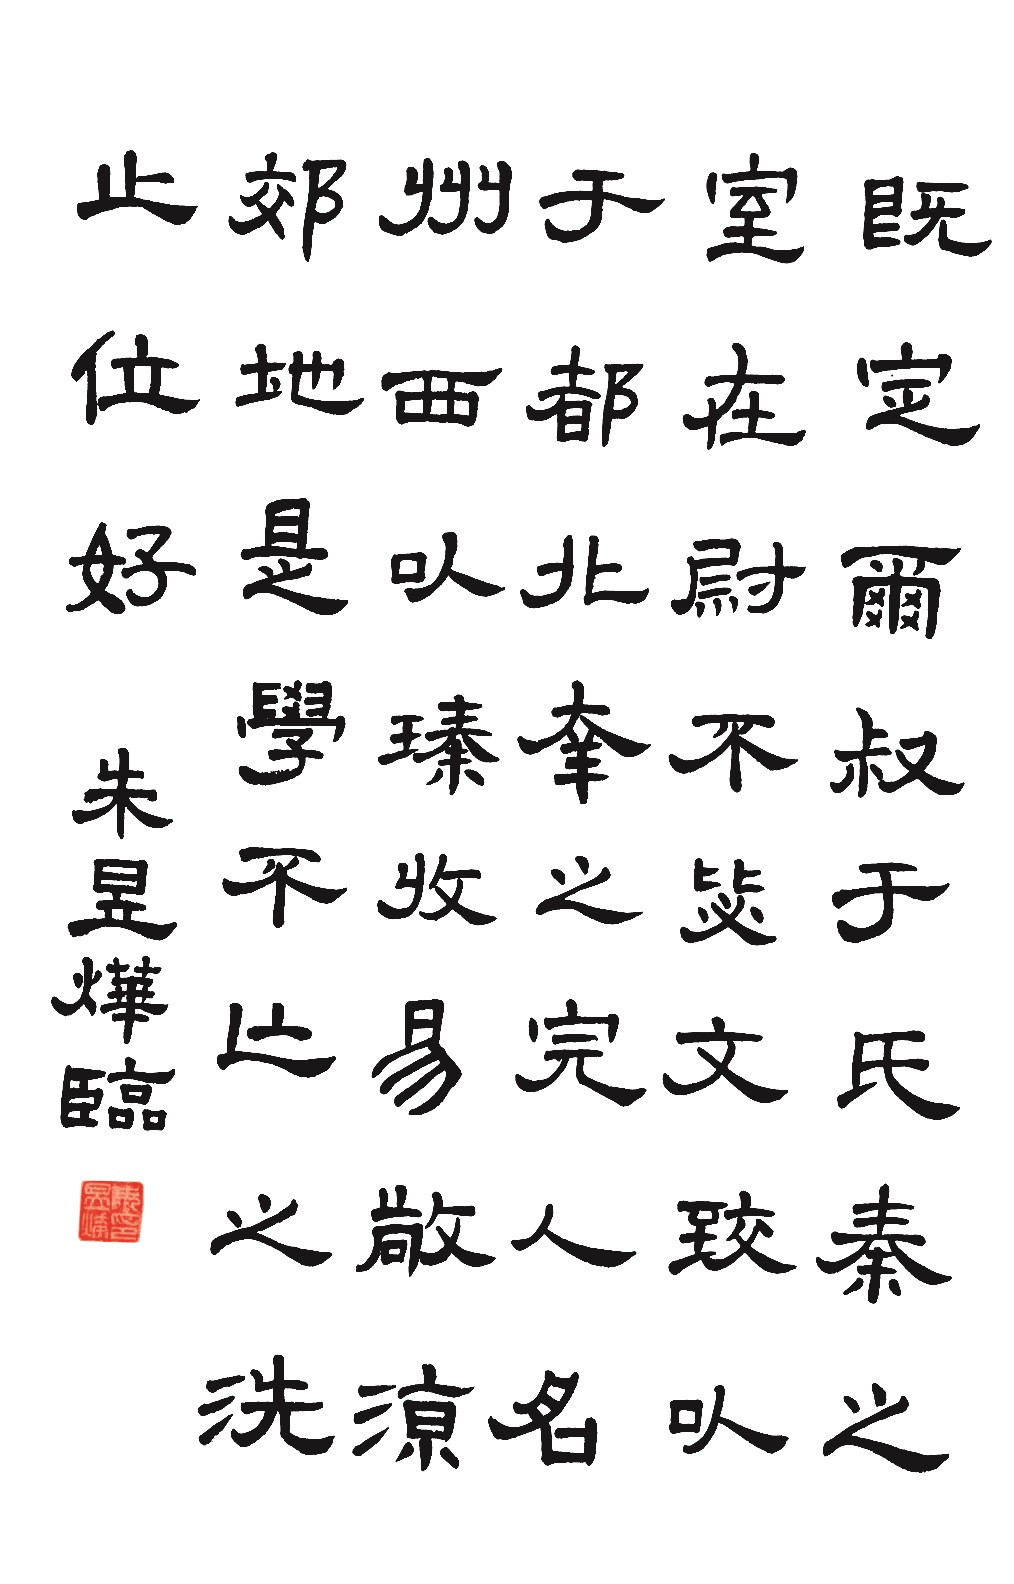 既定爾叔于氏秦之
室在尉不毖文致以
于都北幸之完人名
州西以瑧收易敞涼
郊地是學不之洗
止位好
朱昱燁臨